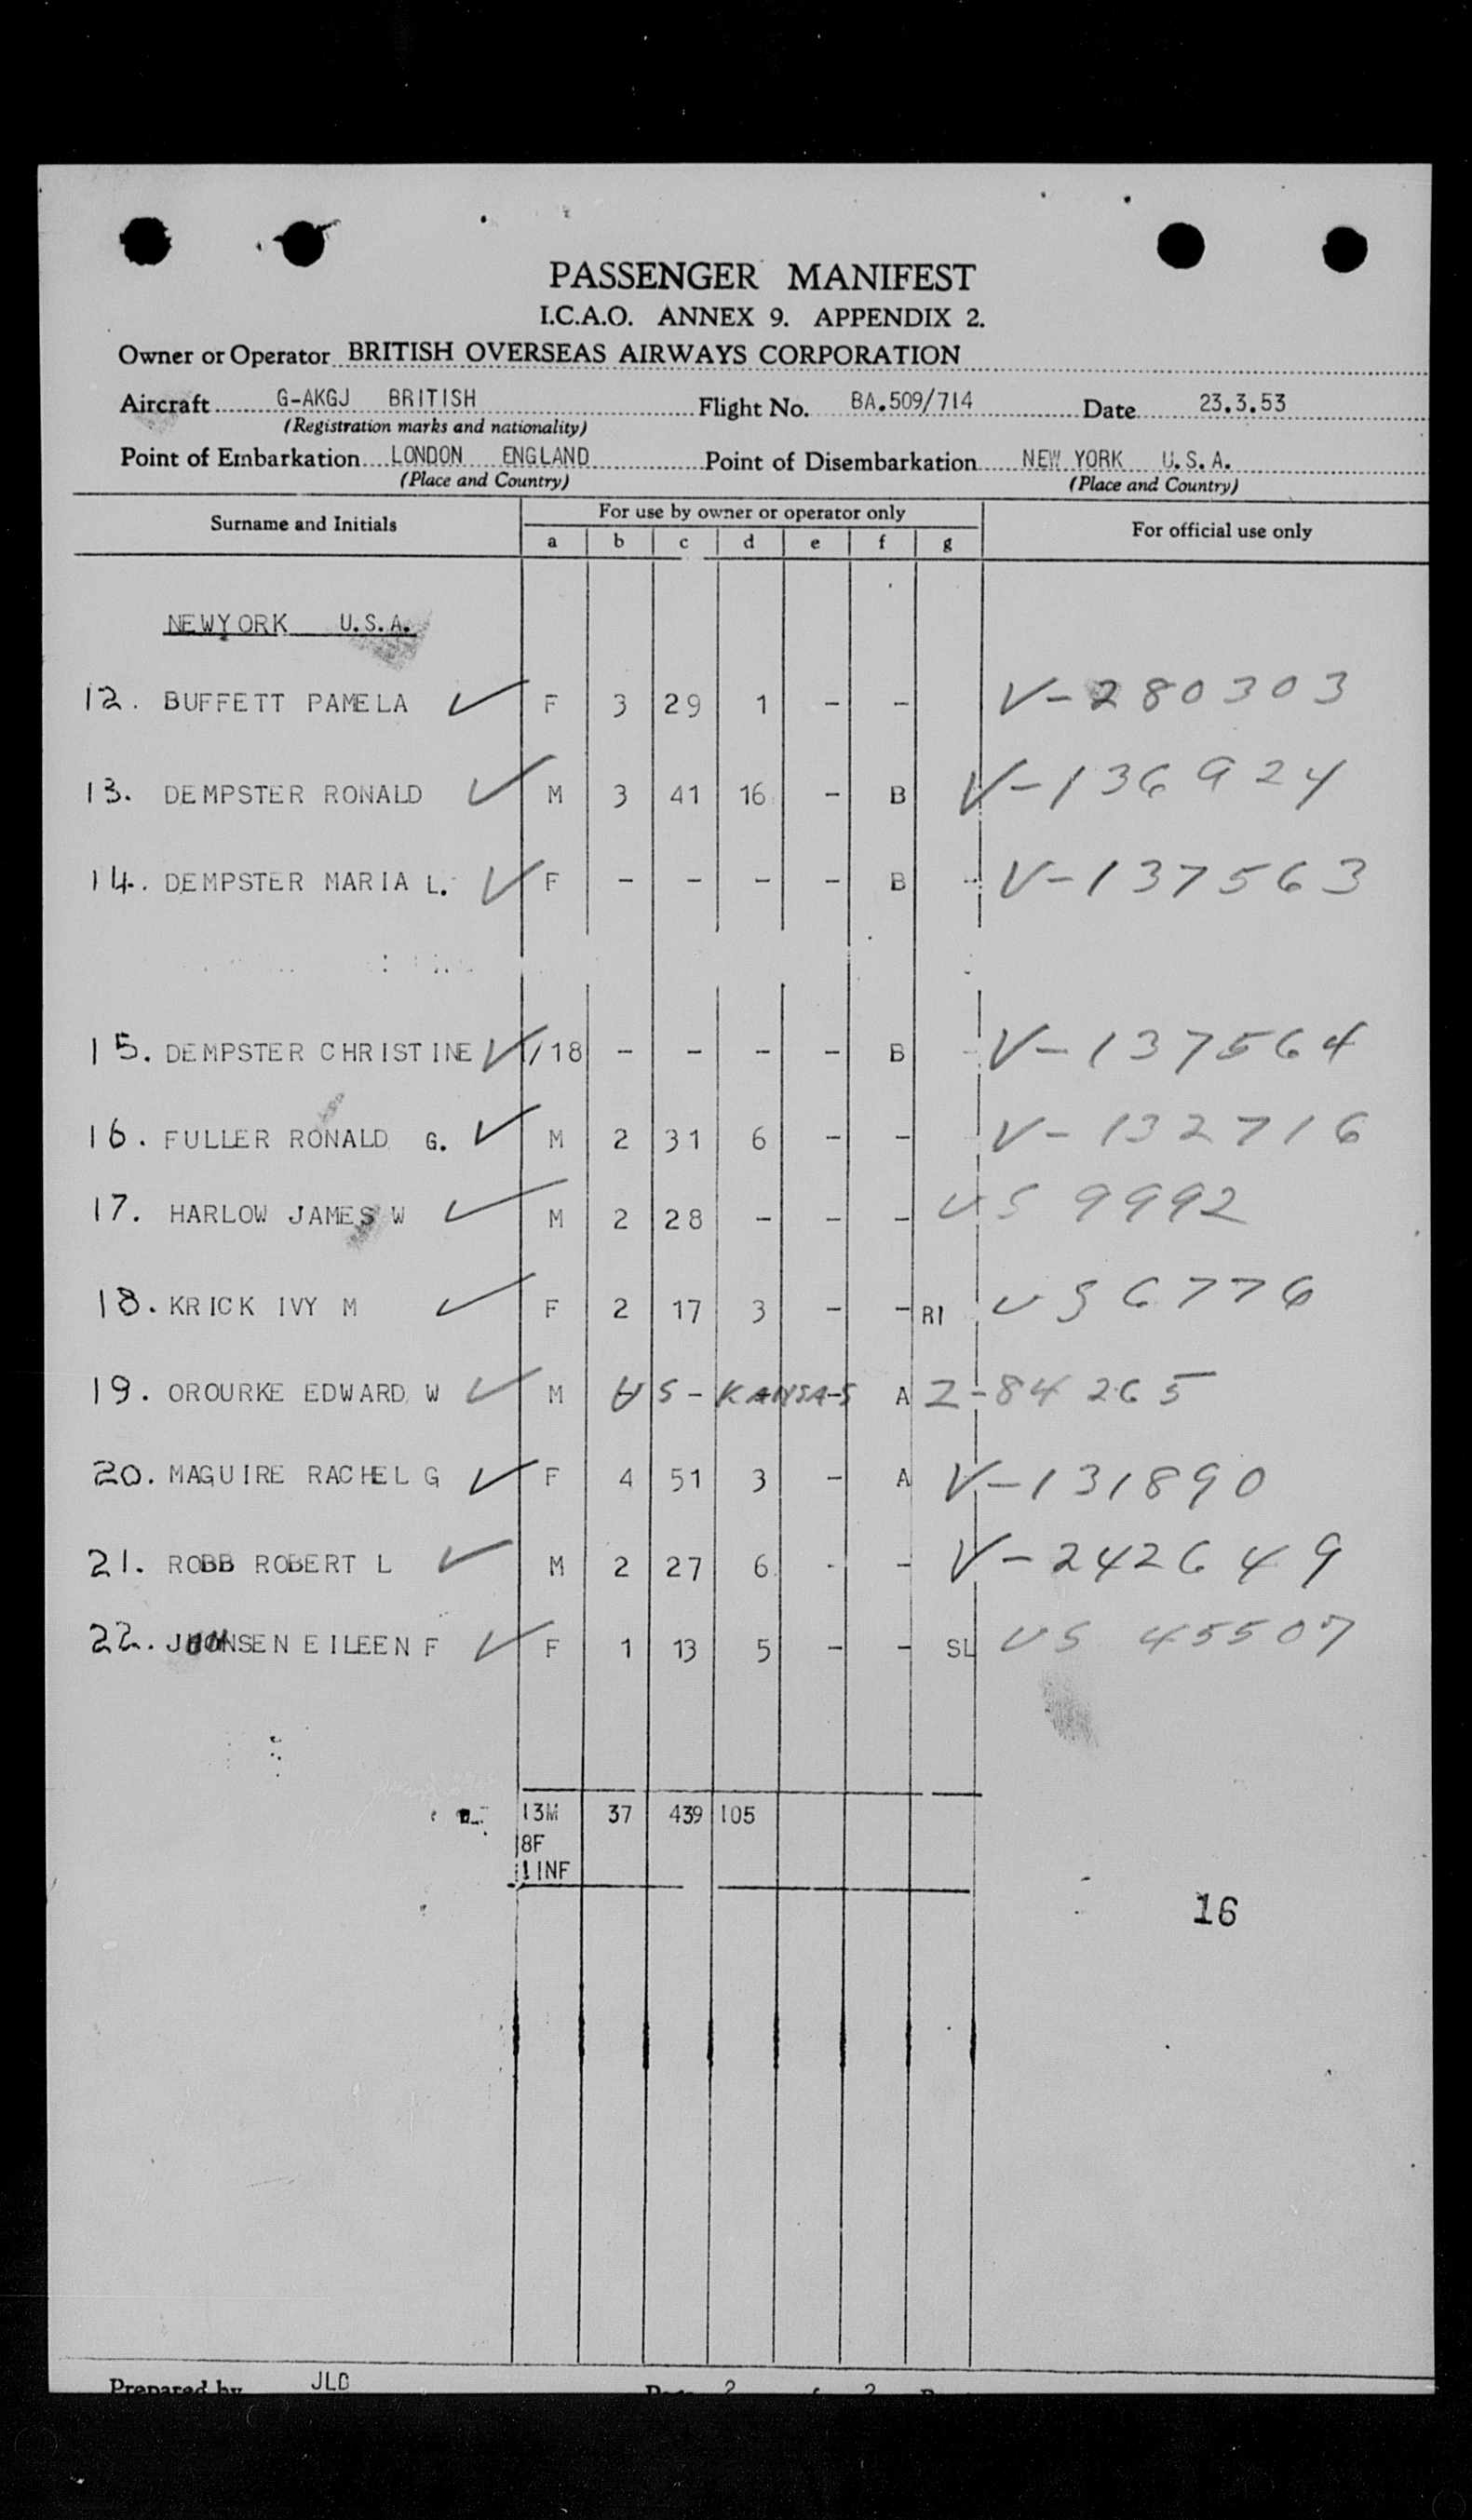 PASSENGER MANIFEST
I.C.A.O. ANNEX 9. APPENDIX 2.
Owner or Operator BRITISH OVERSEAS AIRWAYS CORPORATION
Aircraft G-AKGJ BRITISH Flight No. BA.509/714 Date 23.3.53
(Registration marks and nationality)
Point of Embarkation LONDON ENGLAND Point of Disembarkation NEW YORK U.S.A.
(Place and Country) (Place and Country)
Surname and Initials For use by owner or operator only For official use only
a b c d e f g
NEWYORK U.S.A.
12. BUFFETT PAMELA F 3 29 1 - - V-280303
13. DEMPSTER RONALD M 3 41 16 - B V-136924
14. DEMPSTER MARIA L. F - - - - B V-137563
15. DEMPSTER CHRISTINE /18 - - - - B V-137564
16. FULLER RONALD G. M 2 31 6 - - V-132716
17. HARLOW JAMES W M 2 28 - - - US 9992
18. KRICK IVY M F 2 17 3 - - RI US 6776
19. OROURKE EDWARD W M US-KANSAS A Z-84265
20. MAGUIRE RACHEL G F 4 51 3 - A V-131890
21. ROBB ROBERT L M 2 27 6 - - V-242649
22. EILEEN F F 1 13 5 - - SL US 45507
13M 37 439 105
8F
1INF
16
Prepared by
2 2